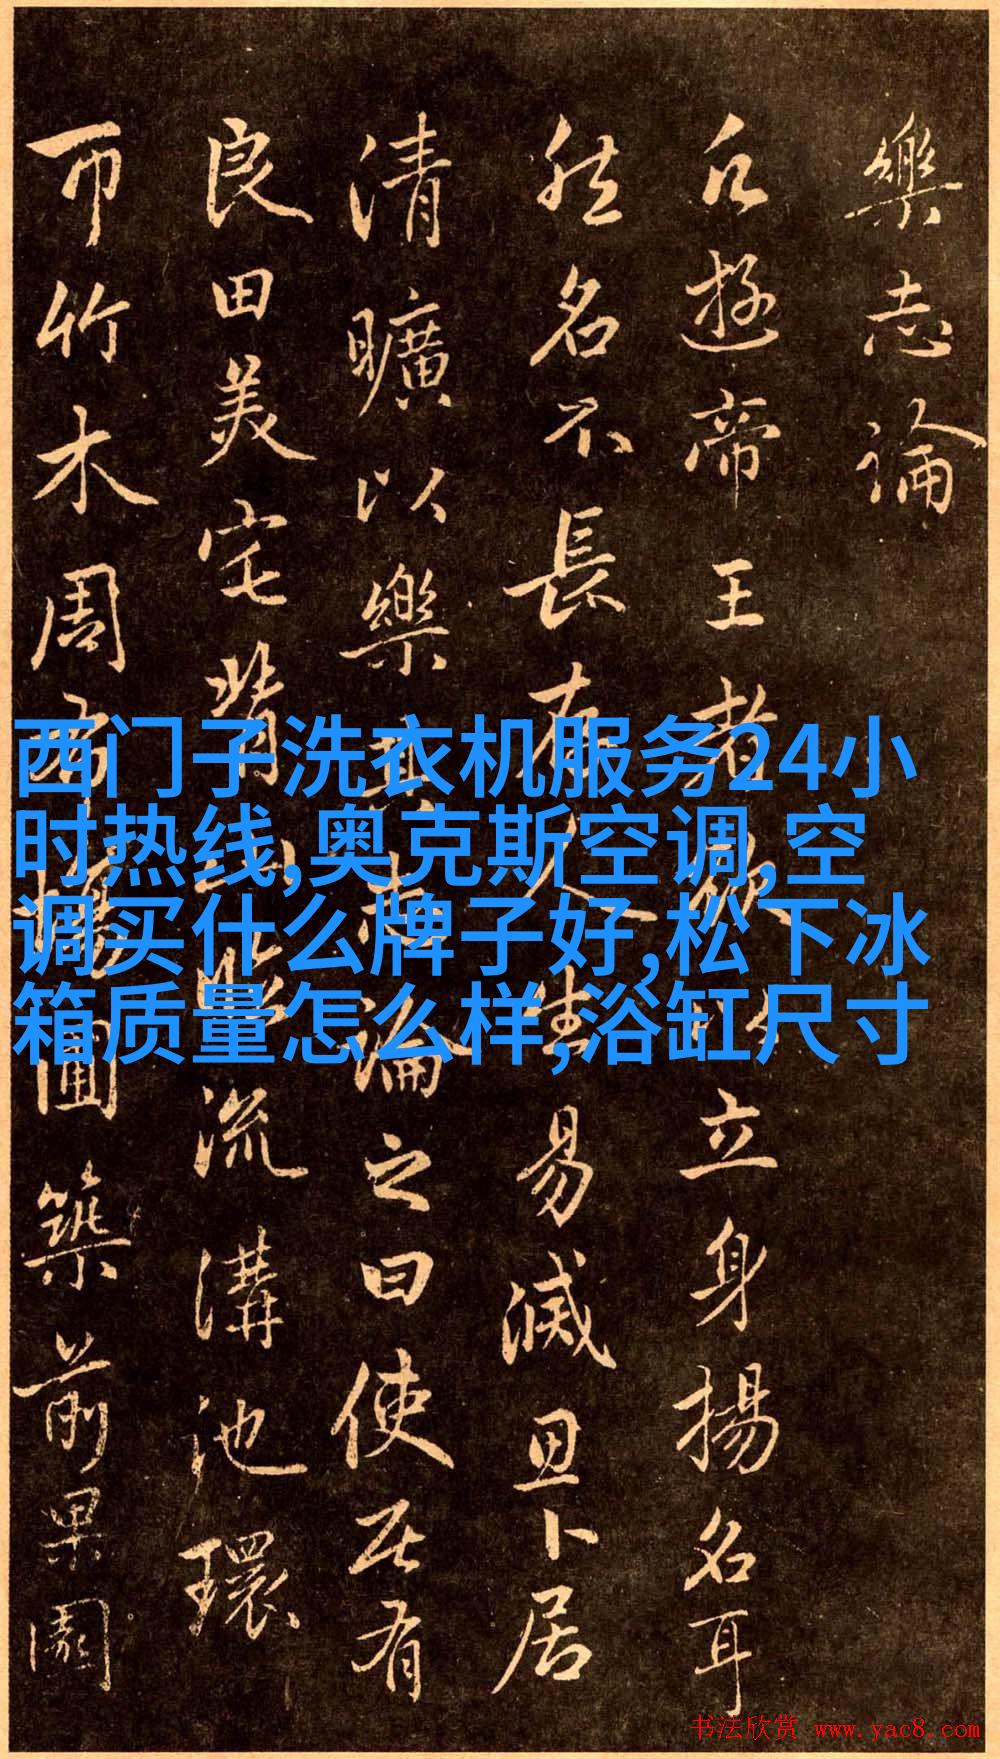 樂志論
凡遊帝王者欲以立身揚名耳
然名不長存人生易滅思卜居
清曠以樂其志論之曰使居有
良田美宅背山臨流溝池環
帀竹木周布場圃築前果園
西门子洗衣机服务24小
时热线,奥克斯空调,空
调买什么牌子好,松下冰
箱质量怎么样,浴缸尺寸
书法欣赏 www.yac8.com